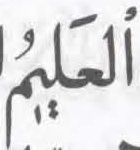 ٱلعَلِيمُ